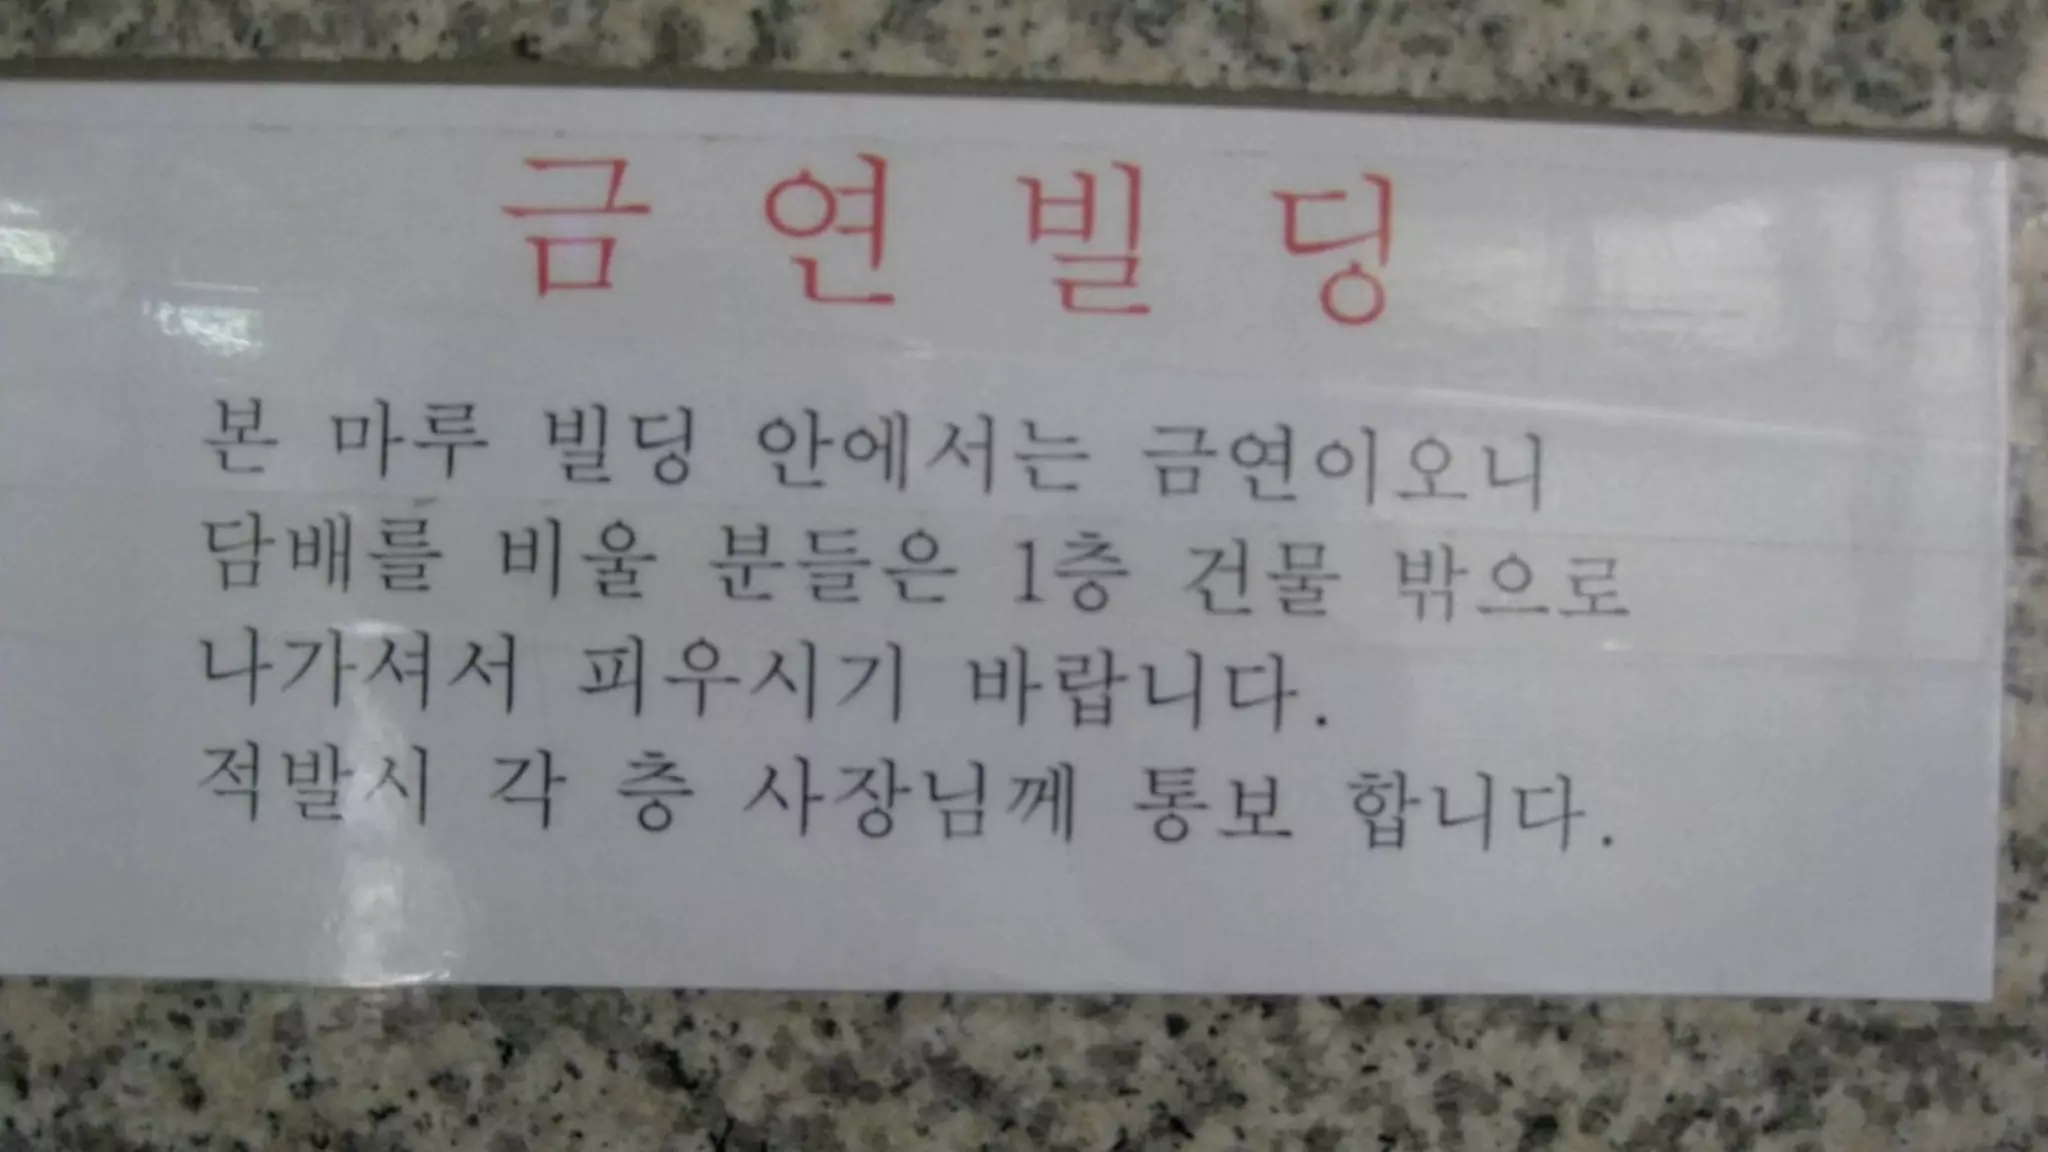 금 연 빌 딩
본 마루 빌딩 안에서는 금연이오니
담배를 비울 분들은 1층 건물 밖으로
나가셔서 피우시기 바랍니다.
적발시 각 층 사장님께 통보 합니다.